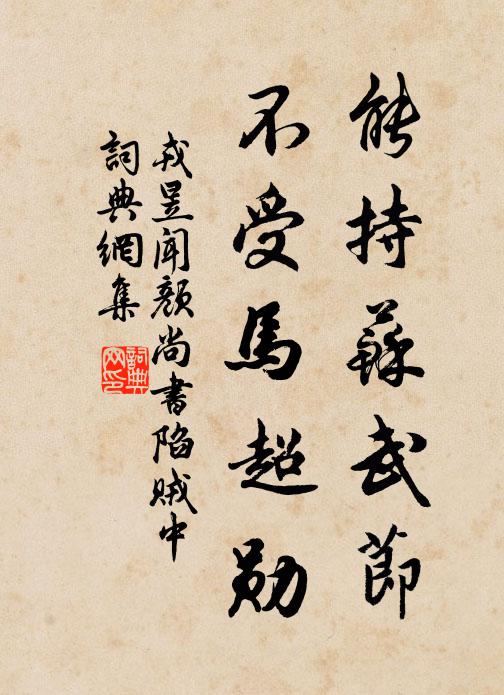 能持蘇武節
不受馬超勛
戎昱聞顏尚書陷賊中
詞典網集
詞典网印